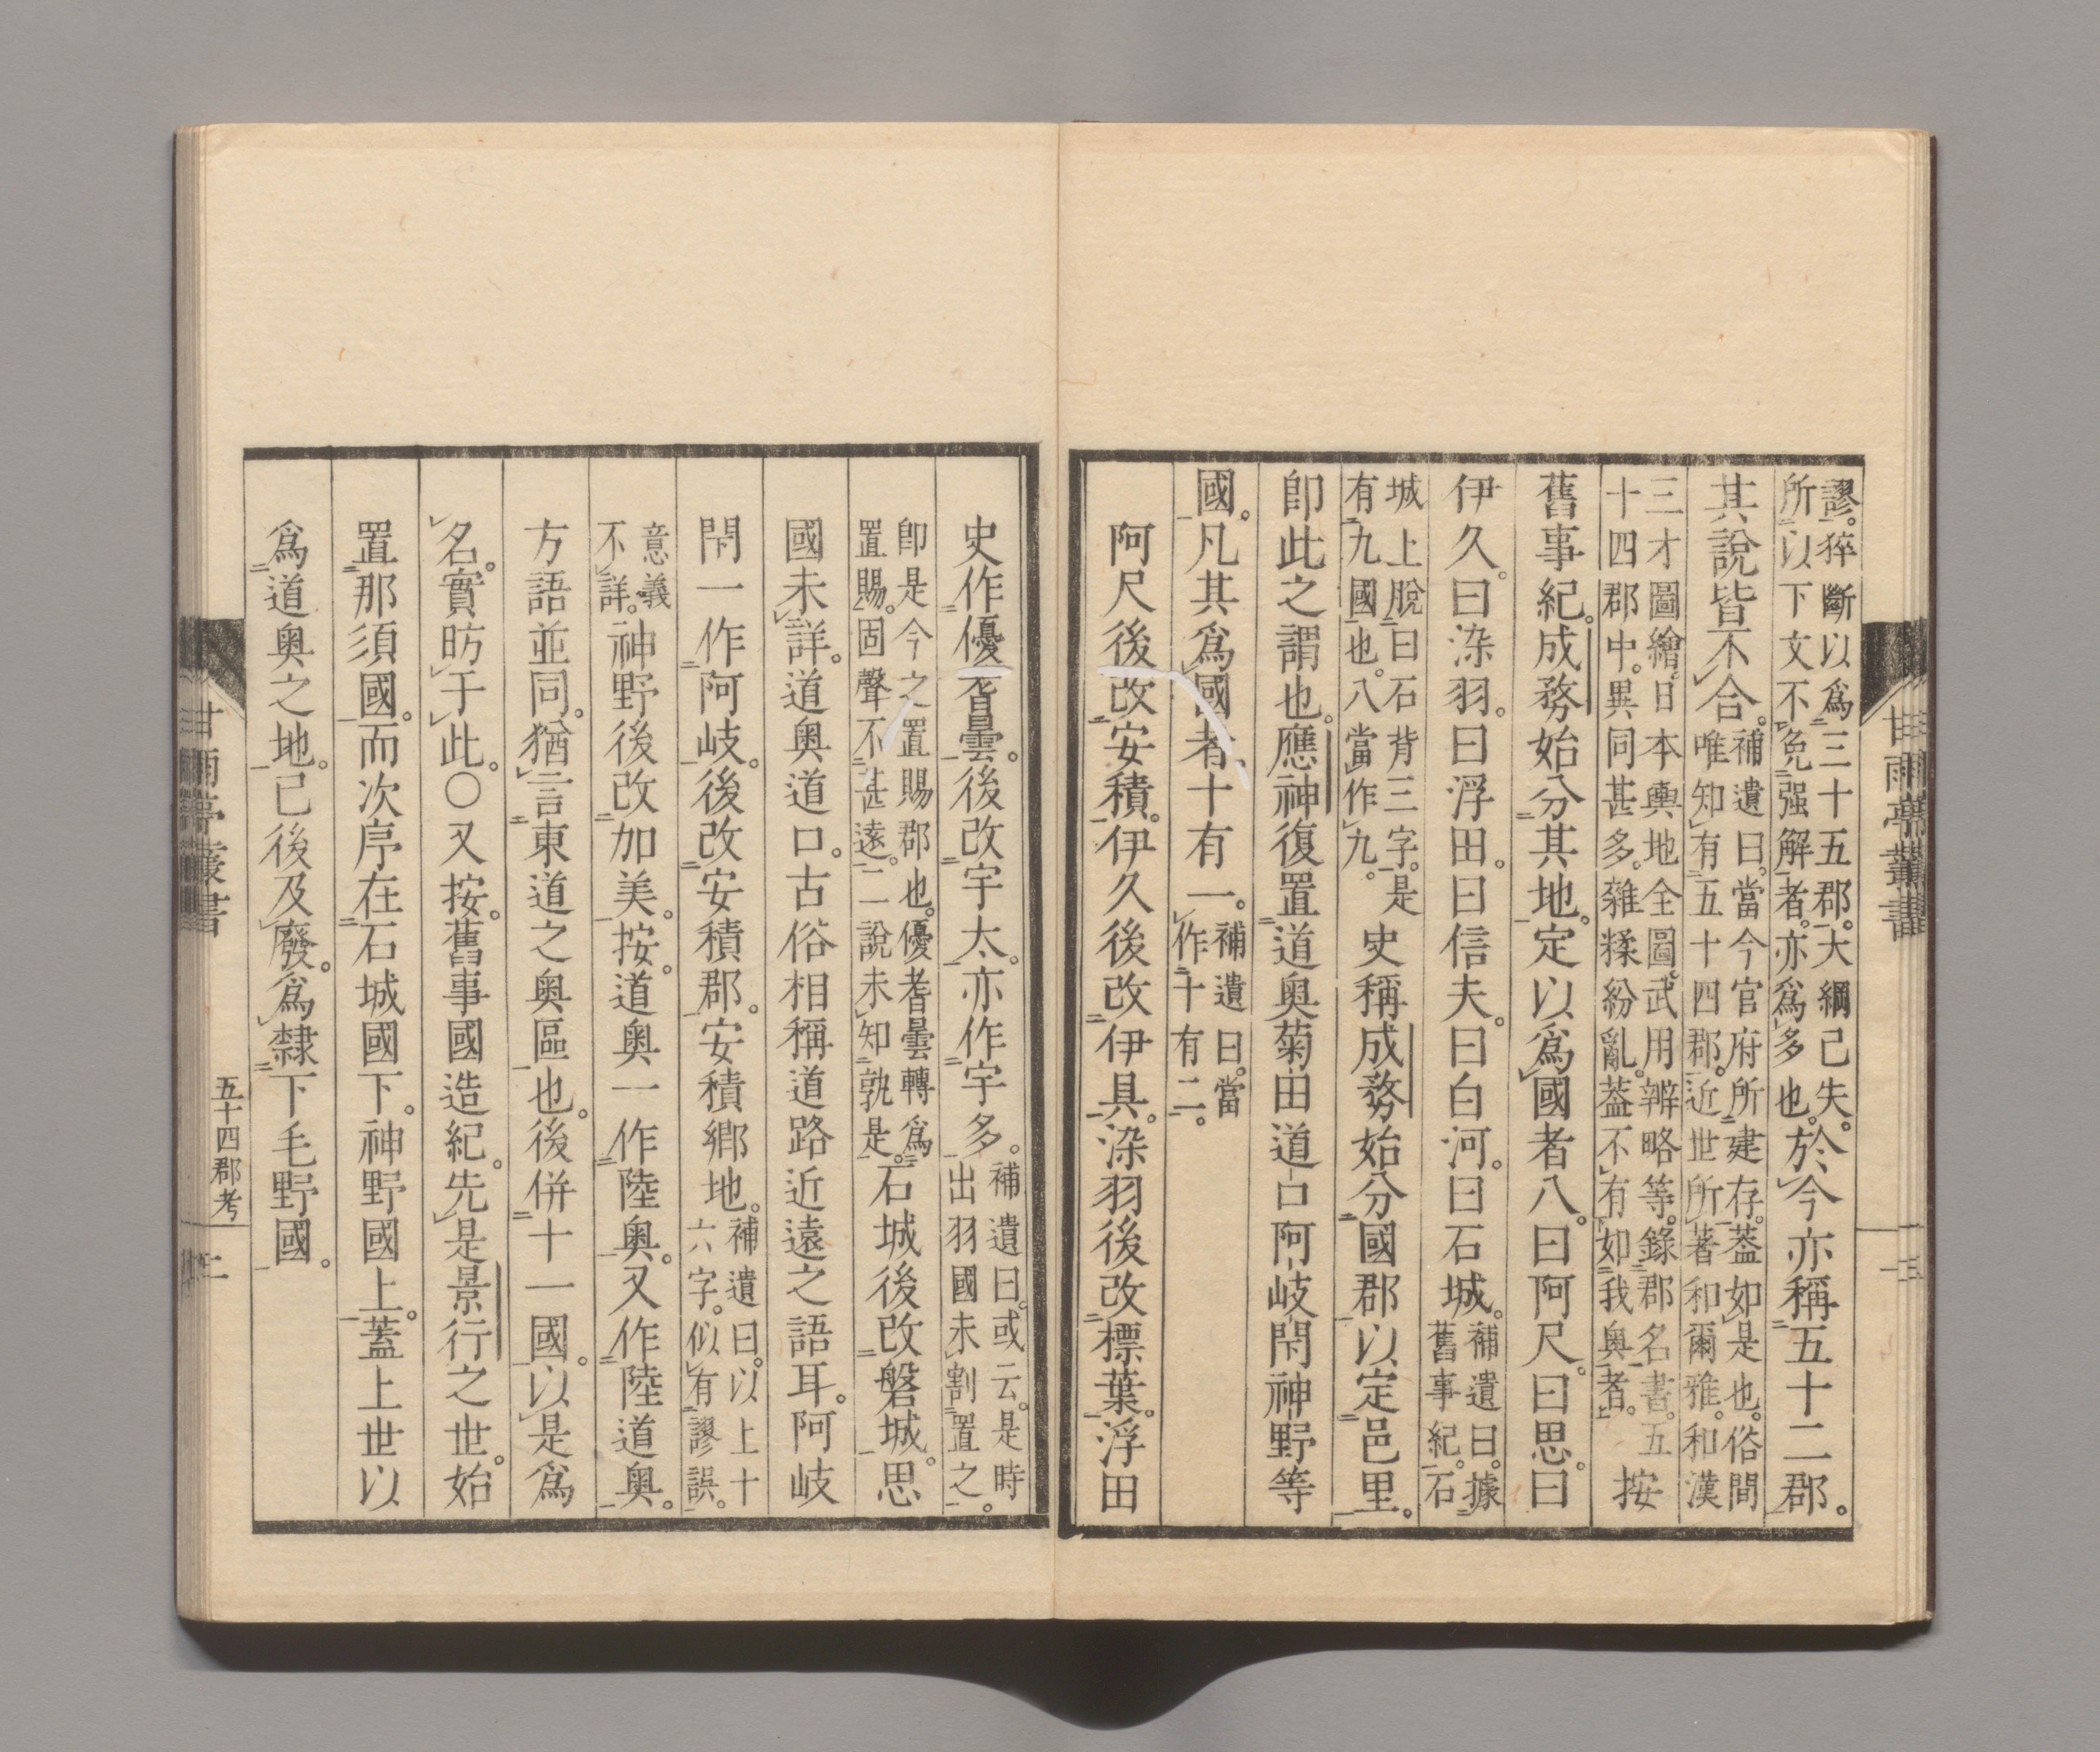 謬。猝斷以爲三十五郡。大綱已失。
所以下文不免强解者。亦爲多也。
於今亦稱五十二郡。
其說皆不合。
補遺曰。當今官府所建存。蓋如是也。俗間
唯知有五十四郡。近世所著和爾雅。和漢
三才圖繪。日本輿地全圖。武用辨略等。錄郡名書。五
十四郡中。異同甚多。雜糅紛亂。蓋不有如我奧者。
按
舊事紀。成務始分其地。定以爲國者八。曰阿尺。曰思。曰
伊久。曰染羽。曰浮田。曰信夫。曰白河。曰石城。
補遺曰。據
舊事紀。石
城上脫曰石背三字。是
有九國也。八當作九。
史稱成務始分國郡以定邑里。
卽此之謂也。應神復置道奧菊田道口阿岐閇神野等
國。凡其爲國者。十有一。
補遺曰。當
作十有二。
阿尺後改安積。伊久後改伊具。染羽後改標葉。浮田
甘雨亭叢書
史作優耆曇。後改宇太。亦作宇多。
補遺曰。或云。是時
出羽國未割置之。
卽是今之置賜郡也。優耆曇轉爲
置賜。固聲不甚遠。二說未知孰是。
石城後改磐城。思
國未詳。道奧道口。古俗相稱道路近遠之語耳。阿岐
閇一作阿岐。後改安積郡。安積鄉地。
補遺曰。以上十
六字。似有謬誤。
意義
不詳。
神野後改加美。按。道奧一作陸奧。又作陸道奧。
方語並同。猶言東道之奧區也。後併十一國。以是爲
名。實昉于此。〇又按。舊事國造紀。先是景行之世。始
置那須國。而次序在石城國下。神野國上。蓋上世以
爲道奧之地。已後及廢。爲隸下毛野國。
甘雨亭叢書
五十四郡考